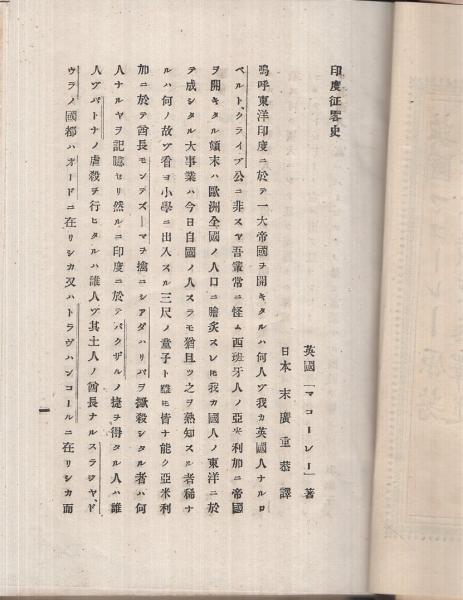 印度征畧史
英國「マコーレー」著
日本 末廣重恭 譯
嗚呼東洋印度ニ於テ一大帝國ヲ開キタルハ何人ゾ我カ英國人ナルロ
ベルト、クライブ公ニ非スヤ吾輩常ニ怪ム西班牙人ノ亞米利加ニ帝國
ヲ開キタル顛末ハ歐洲全國ノ人口ニ膾炙スレ𪜈我カ國人ノ東洋ニ於
テ成シタル大事業ハ今日自國ノ人スラモ猶且ツ之ヲ熟知スル者稀ナ
ルハ何ノ故ゾ看ヨ小學ニ出入スル三尺ノ童子ト雖モ皆ナ能ク亞米利
加ニ於テ酋長モンテズーマヲ擒ニシアダハリパヲ𢭐殺シタル者ハ何
人ナルヤヲ記臆セリ然ルニ印度ニ於テバクザルノ捷ヲ得タル人ハ誰
人ゾパトナノ虐殺ヲ行ヒタルハ誰人ゾ其土人ノ酋長ナルスラジヤ、ド
ウラノ國都ハオードニ在リシカ又ハトラヴハンコールニ在リシカ而
一